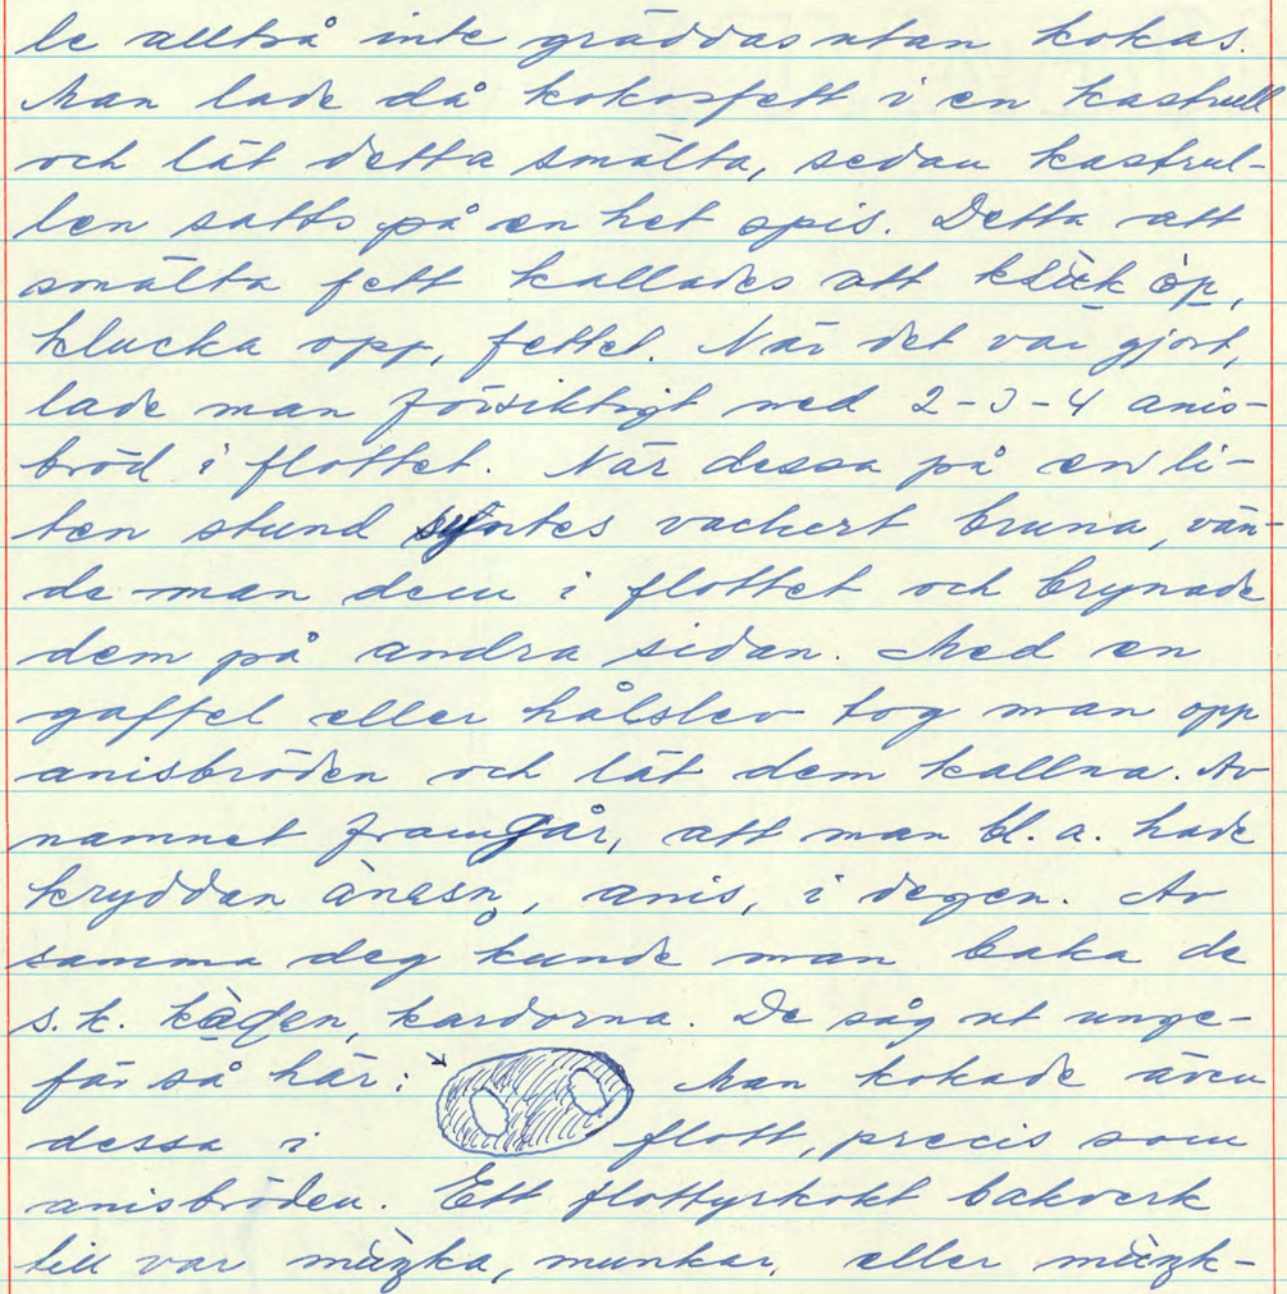 le alltså inte gräddas utan kokas.
Man lade då kokosfett i en kastrull
och lät detta smälta, sedan kastrul-
len satts på en het spis. Detta att
smälta fett kallades att klùk òp,
klucka opp, fettet. När det var gjort,
lade man försiktigt ned 2-3-4 anis-
bröd i flottet. När dessa på en li-
ten stund syntes vackert bruna, vän-
de man dem i flottet och brynade
dem på andra sidan. Med en
gaffel eller hålslev tog man opp
anisbröden och lät dem kallna. Av
namnet framgår, att man bl. a. hade
kryddan ànesn, anis, i degen. Av
samma deg kunde man baka de
s.k. kardorna. De såg ut unge-
fär så här: Man kokade även
dessa i flott, precis som
anisbröden. Ett flottyrkokt bakverk
till var munkar, eller